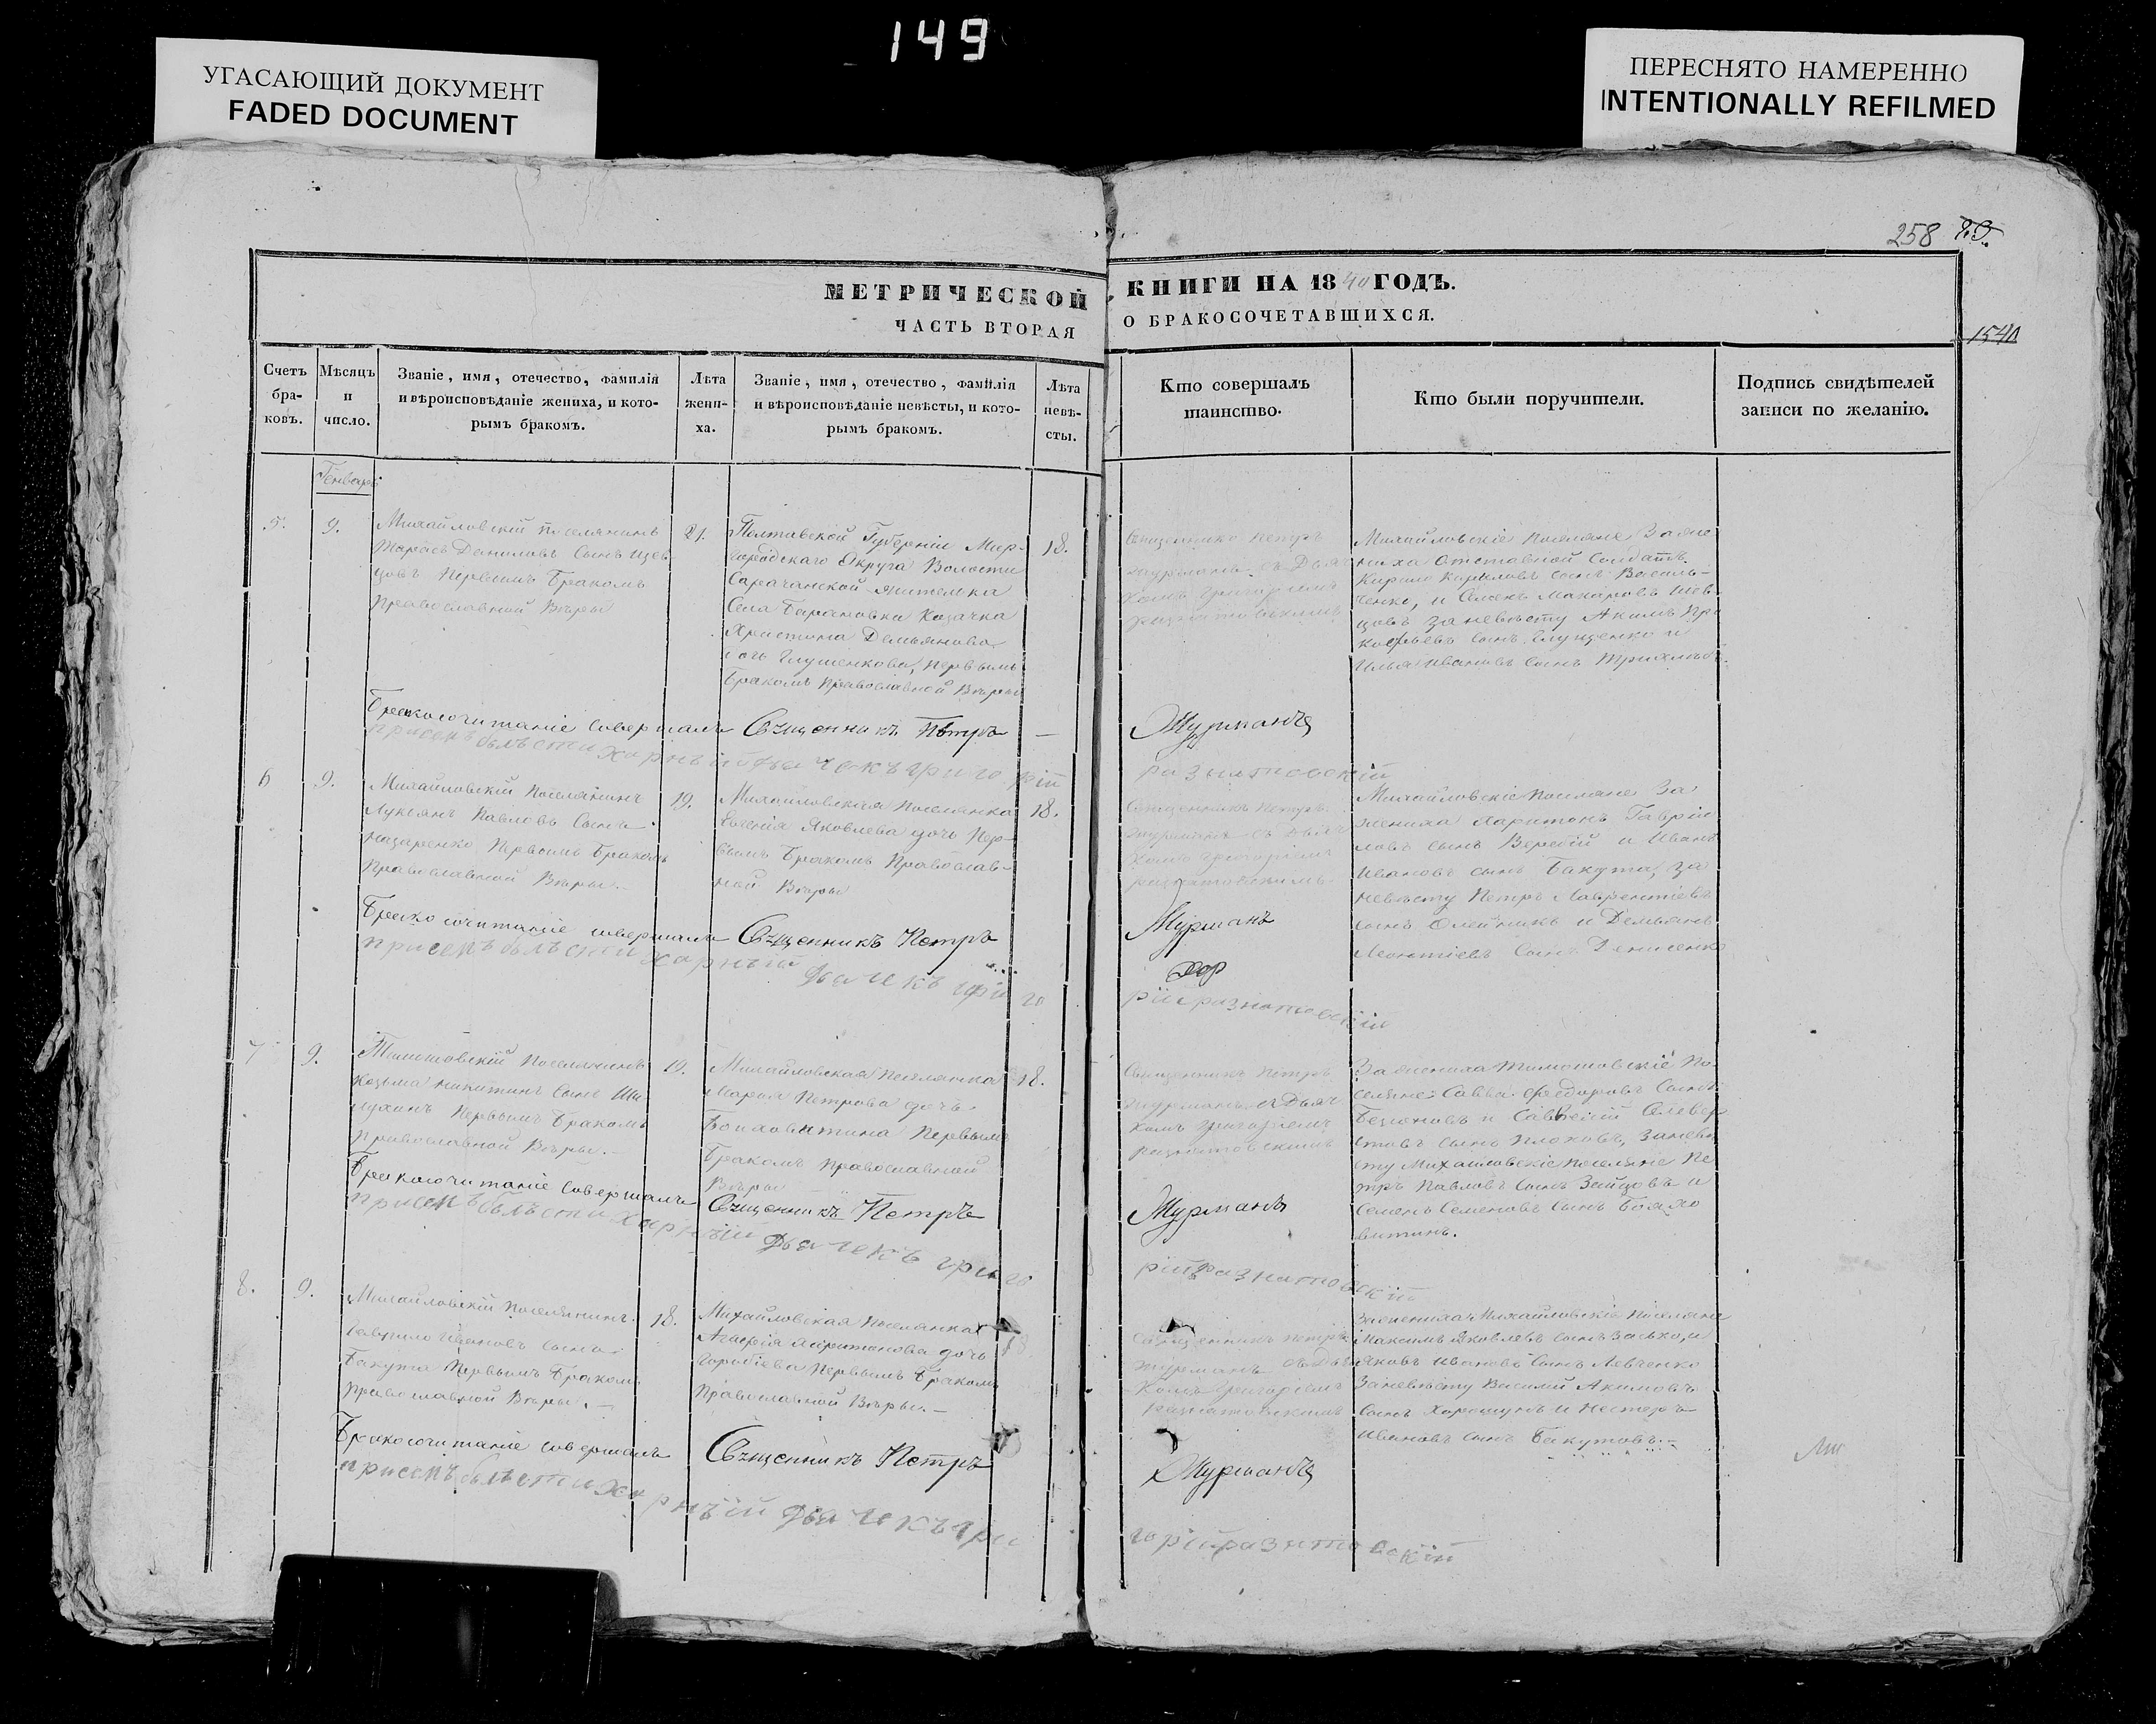 149
УГАСАЮЩИЙ ДОКУМЕНТ
FADED DOCUMENT
ПЕРЕСНЯТО НАМЕРЕННО
INTENTIONALLY REFILMED
258
МЕТРИЧЕСКОЙ КНИГИ НА 1840 ГОДЪ.
ЧАСТЬ ВТОРАЯ О БРАКОСОЧЕТАВШИХСЯ.
1540
Счетъ
бра-
ковъ.
Мѣсяцъ
и
число.
Званіе, имя, отечество, фамилія
и вѣроисповѣданіе жениха, и кото-
рымъ бракомъ.
Лѣта
жени-
ха.
Званіе, имя, отечество, фамилія
и вѣроисповѣданіе невѣсты, и кото-
рымъ бракомъ.
Лѣта
невѣ-
сты.
Кто совершалъ
таинство.
Кто были поручители.
Подпись свидѣтелей
записи по желанію.
Генваря
5.
9.
Михайловскій поселянинъ
Тарасъ Даниловъ сынъ Шев-
цовъ первымъ бракомъ
православной вѣры
21.
Полтавской Губерніи Мир-
городскаго Округа Волости
жителька
Села Барановки Козачка
Христина Демьянова
дочь Глушенкова, первымъ
бракомъ православной вѣры
18.
Священникъ Петръ
Журманъ съ Дьяч
комъ Григоріемъ
Разнатовскимъ
Михайловскіе поселяне За же
ниха отставной солдатъ
Кирило Кириловъ сынъ Василь-
ченко, и Семенъ Макаровъ Шев-
цовъ за невѣсту Акимъ Про
кофьевъ сынъ Глущенко и
Илья Ивановъ сынъ
Бракосочитаніе совершалъ Свщенникъ Петръ Журманъ
присемъ былъ стихарный дьячекъ григорій разнатовскій
6
9.
Михайловскій поселянинъ
Лукьянъ Павловъ сынъ
Назаренко первымъ бракомъ
православной вѣры.
19.
Михайловская поселянка
Евгенія Яковлева дочь пер-
вымъ бракомъ православ-
ной вѣры
18.
Священникъ Петръ
Журманъ съ Дьяч
комъ Григоріемъ
Разнатовскимъ
Михайловскіе поселяне За
жениха Харитонъ Гаврии
ловъ сынъ и Иванъ
Ивановъ сынъ Бакута, за
невѣсту Петръ Лаврентіевъ
сынъ Олейникъ и Демьянъ
Леонтіевъ сынъ Денисенко
Бракосочитаніе совершалъ Свщенникъ Петръ Журманъ
присемъ былъ стихарный дьячекъ григо
рій разнатовскій
7
9.
поселянинъ
Козьма Никитинъ сынъ Ши
лухинъ первымъ бракомъ
православной вѣры.
19.
Михайловская поселянка
Марія Петрова дочь
первымъ
бракомъ православной
вѣры
18.
Священникъ Петръ
Журманъ съ Дьяч
комъ Григоріемъ
Разнатовскимъ
За жениха По
селяне: Савва Федоровъ сынъ
и
сынъ Плоховъ, за невѣ
сту Михайловскіе поселяне Пе
тръ Павловъ сынъ Зайцовъ и
Семенъ Семеновъ сынъ
витинъ.
Бракосочитаніе совершалъ Свщенникъ Петръ Журманъ
присемъ былъ стихарный дьячекъ григо
рій разнатовскій
8.
9.
Михайловскій поселянинъ
Гаврило Ивановъ сынъ
Бакута первымъ бракомъ
православной вѣры.
18.
Михайловская поселянка
Агафія Харитонова дочь
первымъ бракомъ
православной вѣры.
Священникъ Петръ
Журманъ съ Дья
комъ Григоріемъ
Разнатовскимъ
За жениха Михайловскіе поселяне
Максимъ Яковлевъ сынъ и
Яковъ Ивановъ сынъ Левченко
За невѣсту Василій Акимовъ
сынъ Хорошунъ и Нестеръ
Ивановъ сынъ Бакутовъ.
Бракосочитаніе совершалъ Свщенникъ Петръ Журманъ
присемъ былъ стихарный дьячекъ гри
горій разнатовскій